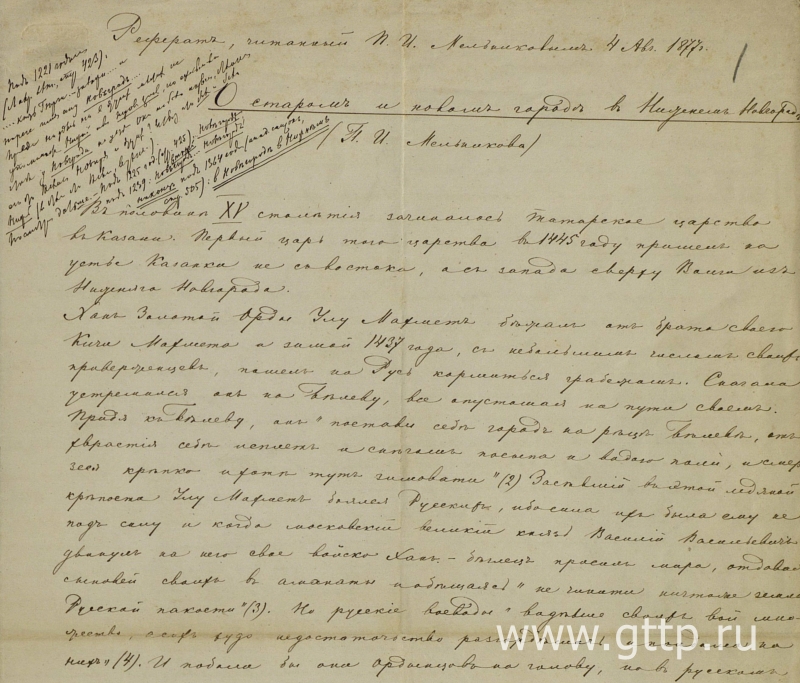 Рефератъ, читанный П. И. Мельниковымъ 4 Авг. 1877 г.
О старомъ и новомъ городѣ въ Нижнемъ Новгородѣ
(П. И. Мельникова)
Подъ 1221 годомъ
Въ половинѣ XV столѣтія зачиналось Татарское царство
въ Казани. Первый царь того царства въ 1445 году пришелъ на
устье Казанки не съ востока, а съ запада сверху Волги изъ
Нижняго Новгорода.
Ханъ Золотой Орды Улу Махметъ бѣжалъ отъ брата своего
Кичи Махмета и зимой 1437 года, съ небольшимъ числомъ своихъ
приверженцевъ, пошелъ на Русь кормиться грабежомъ. Сначала
устремился онъ на Бѣлевъ, все опустошая на пути своемъ.
Придя къ Бѣлеву, онъ "постави себѣ городъ на рѣцѣ Бѣлевѣ, отъ
хврастія себѣ исплетъ и снѣгомъ посыпа и водою поли, и смер
зеся крѣпко и хотя тутъ зимовати" (2) Засѣвшій въ этой ледяной
крѣпости Улу Махметъ боялся Русскихъ, ибо сила ихъ была ему не
подъ силу и когда московскій великій князь Василій Васильевичъ
двинулъ на него свое войско Ханъ - бѣлецъ просилъ мира, отдавая
сыновей своихъ въ аманаты и обѣщаясь "не чинити ничтоже земле
Русской пакости" (3). Но русскіе воеводы "видѣвше своихъ вой мно
жество, а сихъ худо недостаточьство
нихъ" (4). И побили бы они Ордынцовъ на голову, но въ русскомъ
www.gttp.ru